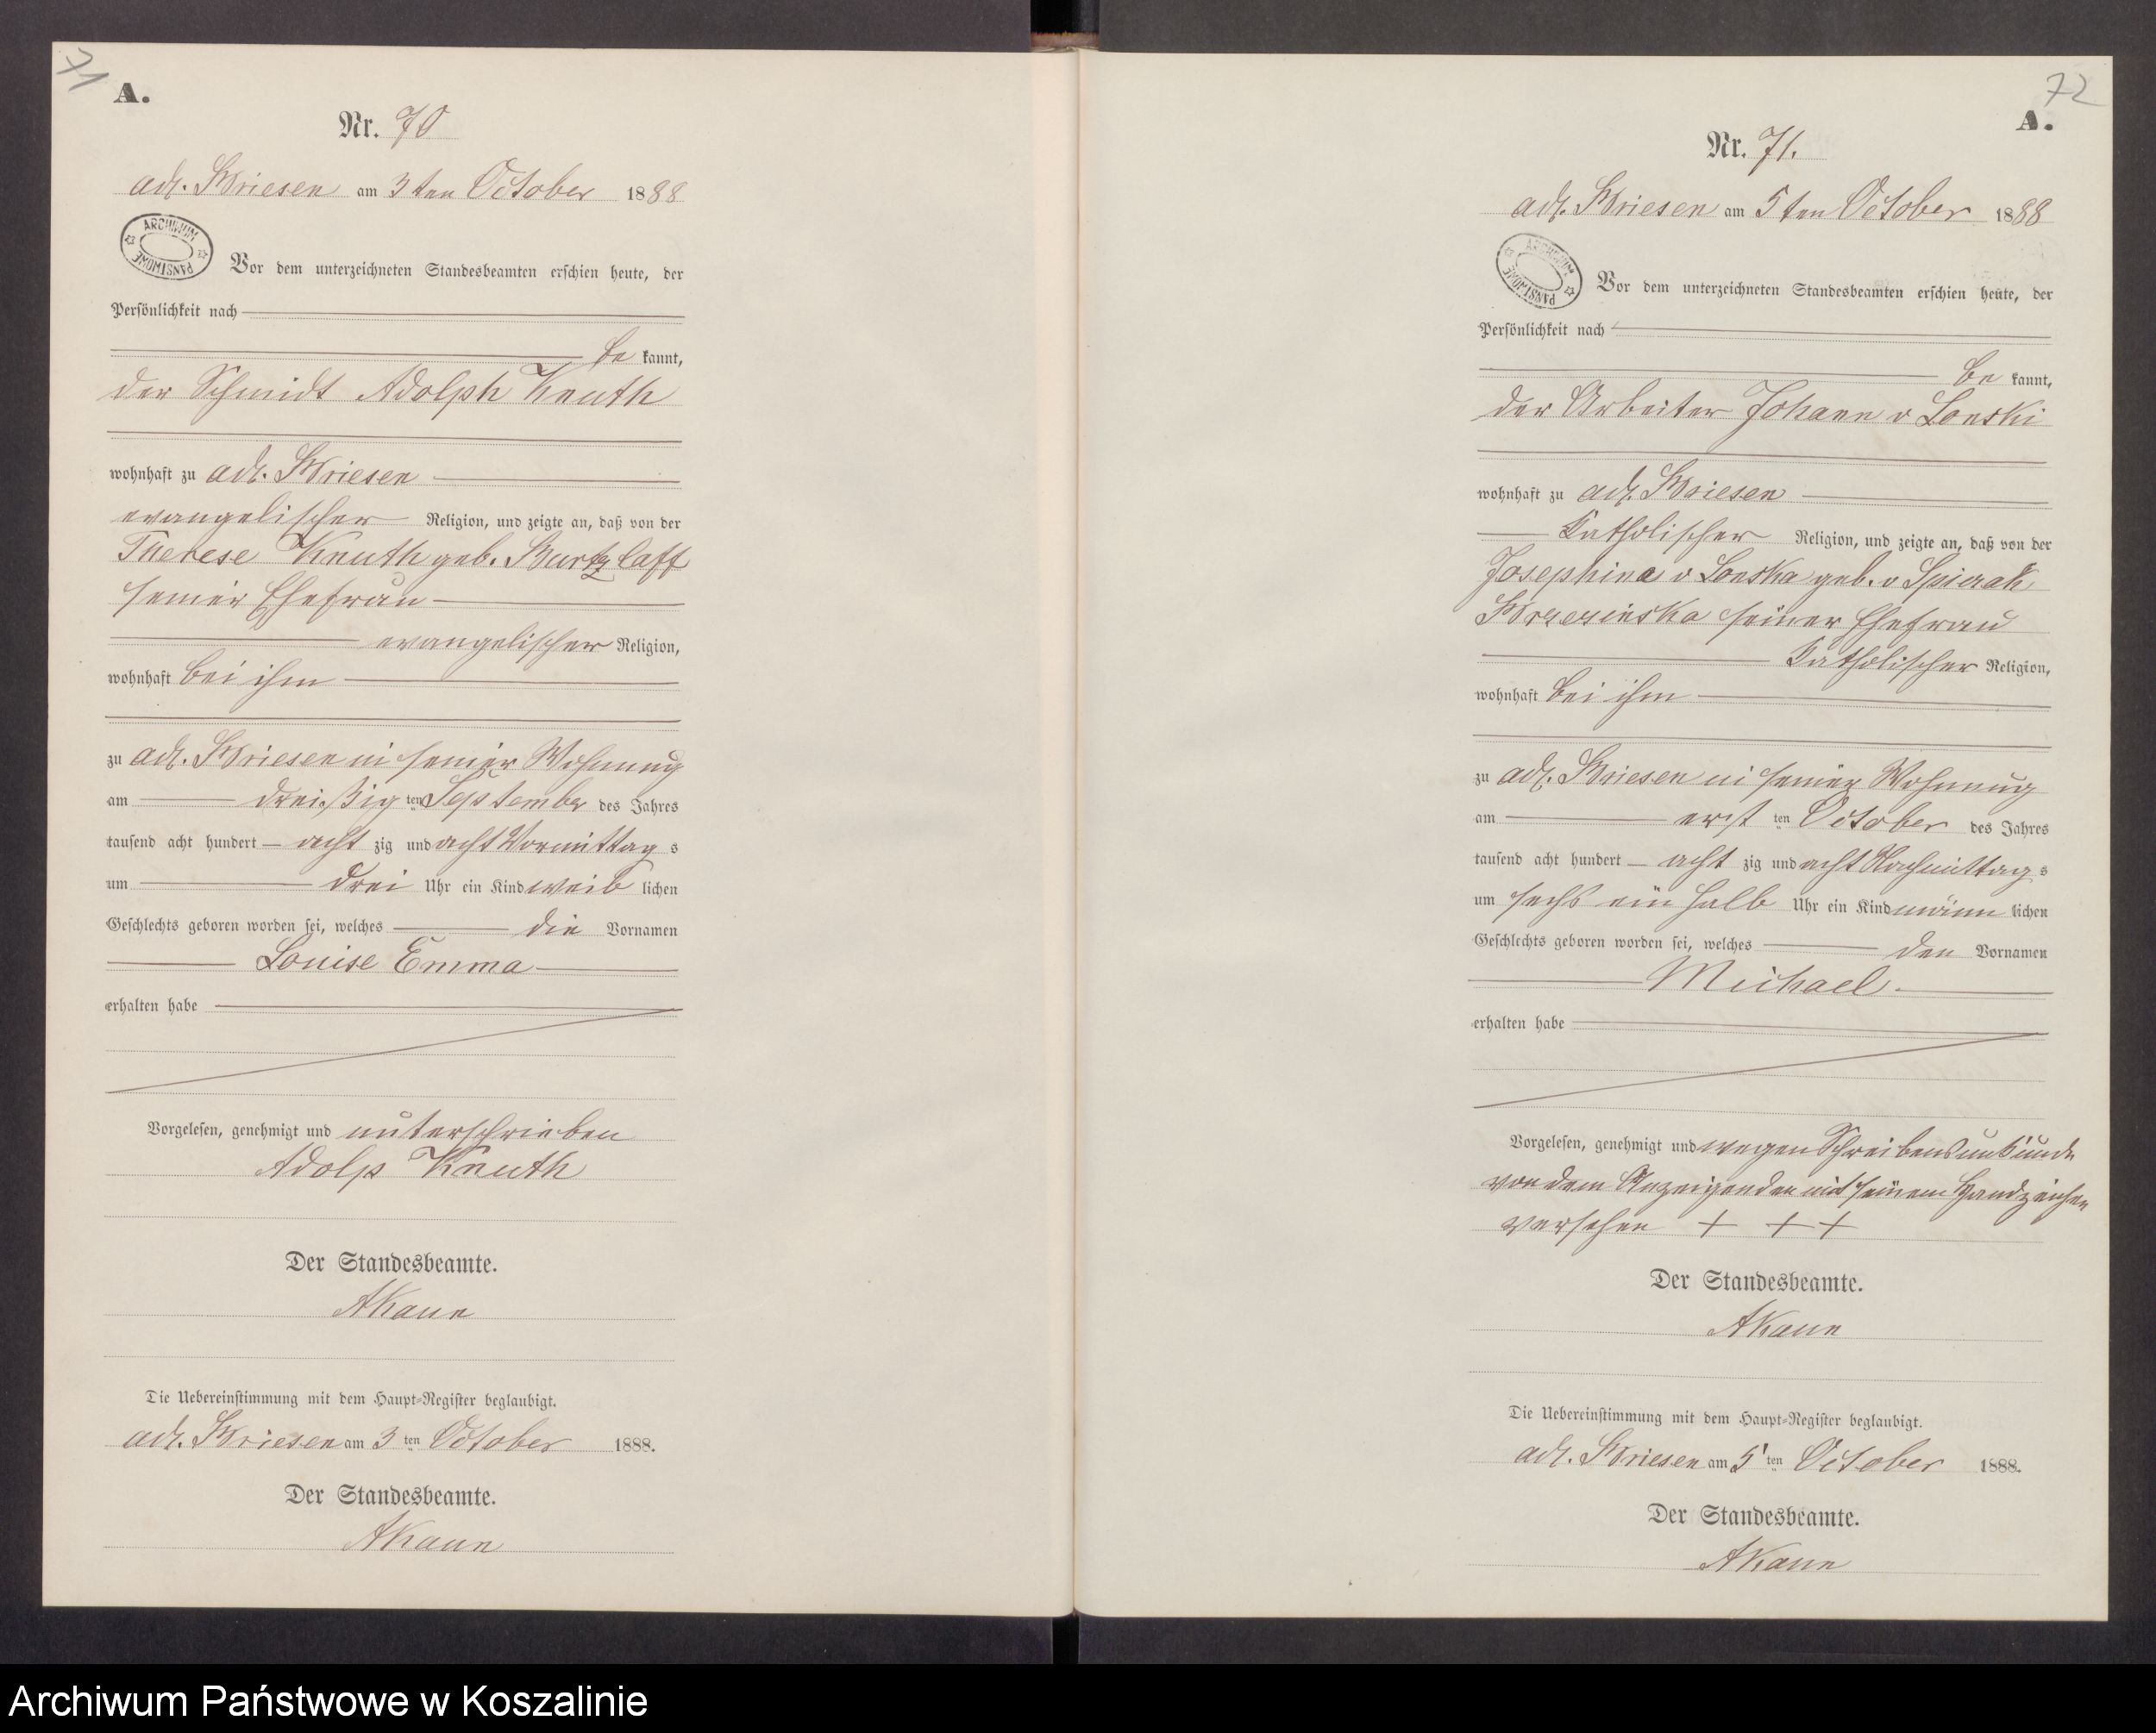 71
A.
Nr. 70
adl. Briesen am 3ten October 1888
ARCHIWUM PAŃSTWOWE
Vor dem unterzeichneten Standesbeamten erschien heute, der
Persönlichkeit nach
be kannt,
der Schmidt Adolph Knuth
wohnhaft zu adl. Briesen
evangelischer Religion, und zeigte an, daß von der
Therese Knuth geb. Burtzlaff
seiner Ehefrau
evangelischer Religion,
wohnhaft bei ihm
zu adl. Briesen in seiner Wohnung
am dreißig ten September des Jahres
tausend acht hundert acht zig und acht Vormittag s
um drei Uhr ein Kind weib lichen
Geschlechts geboren worden sei, welches die Vornamen
Louise Emma
erhalten habe
Vorgelesen, genehmigt und unterschrieben
Adolp Knuth
Der Standesbeamte.
AKaun
Die Uebereinstimmung mit dem Haupt-Register beglaubigt.
adl. Briesen am 3 ten October 1888.
Der Standesbeamte.
AKaun
72
A.
Nr. 71.
adl. Briesen am 5ten October 1888
ARCHIWUM PAŃSTWOWE
Vor dem unterzeichneten Standesbeamten erschien heute, der
Persönlichkeit nach
be kannt,
der Arbeiter Johann v Lonski
wohnhaft zu adl. Briesen
Katholischer Religion, und zeigte an, daß von der
Josephina v Lonska geb. v Spierak
Brzezinska seiner Ehefrau
Katholischer Religion,
wohnhaft bei ihm
zu adl. Briesen in seiner Wohnung
am erst ten October des Jahres
tausend acht hundert acht zig und acht Nachmittag s
um sechs ein halb Uhr ein Kind männ lichen
Geschlechts geboren worden sei, welches den Vornamen
Michael
erhalten habe
Vorgelesen, genehmigt und wegen Schreibensunkunde
von dem Anzeigenden mit seinem Handzeichen
versehen + + +
Der Standesbeamte.
AKaun
Die Uebereinstimmung mit dem Haupt-Register beglaubigt.
adl. Briesen am 5 ten October 1888.
Der Standesbeamte.
AKaun
Archiwum Państwowe w Koszalinie